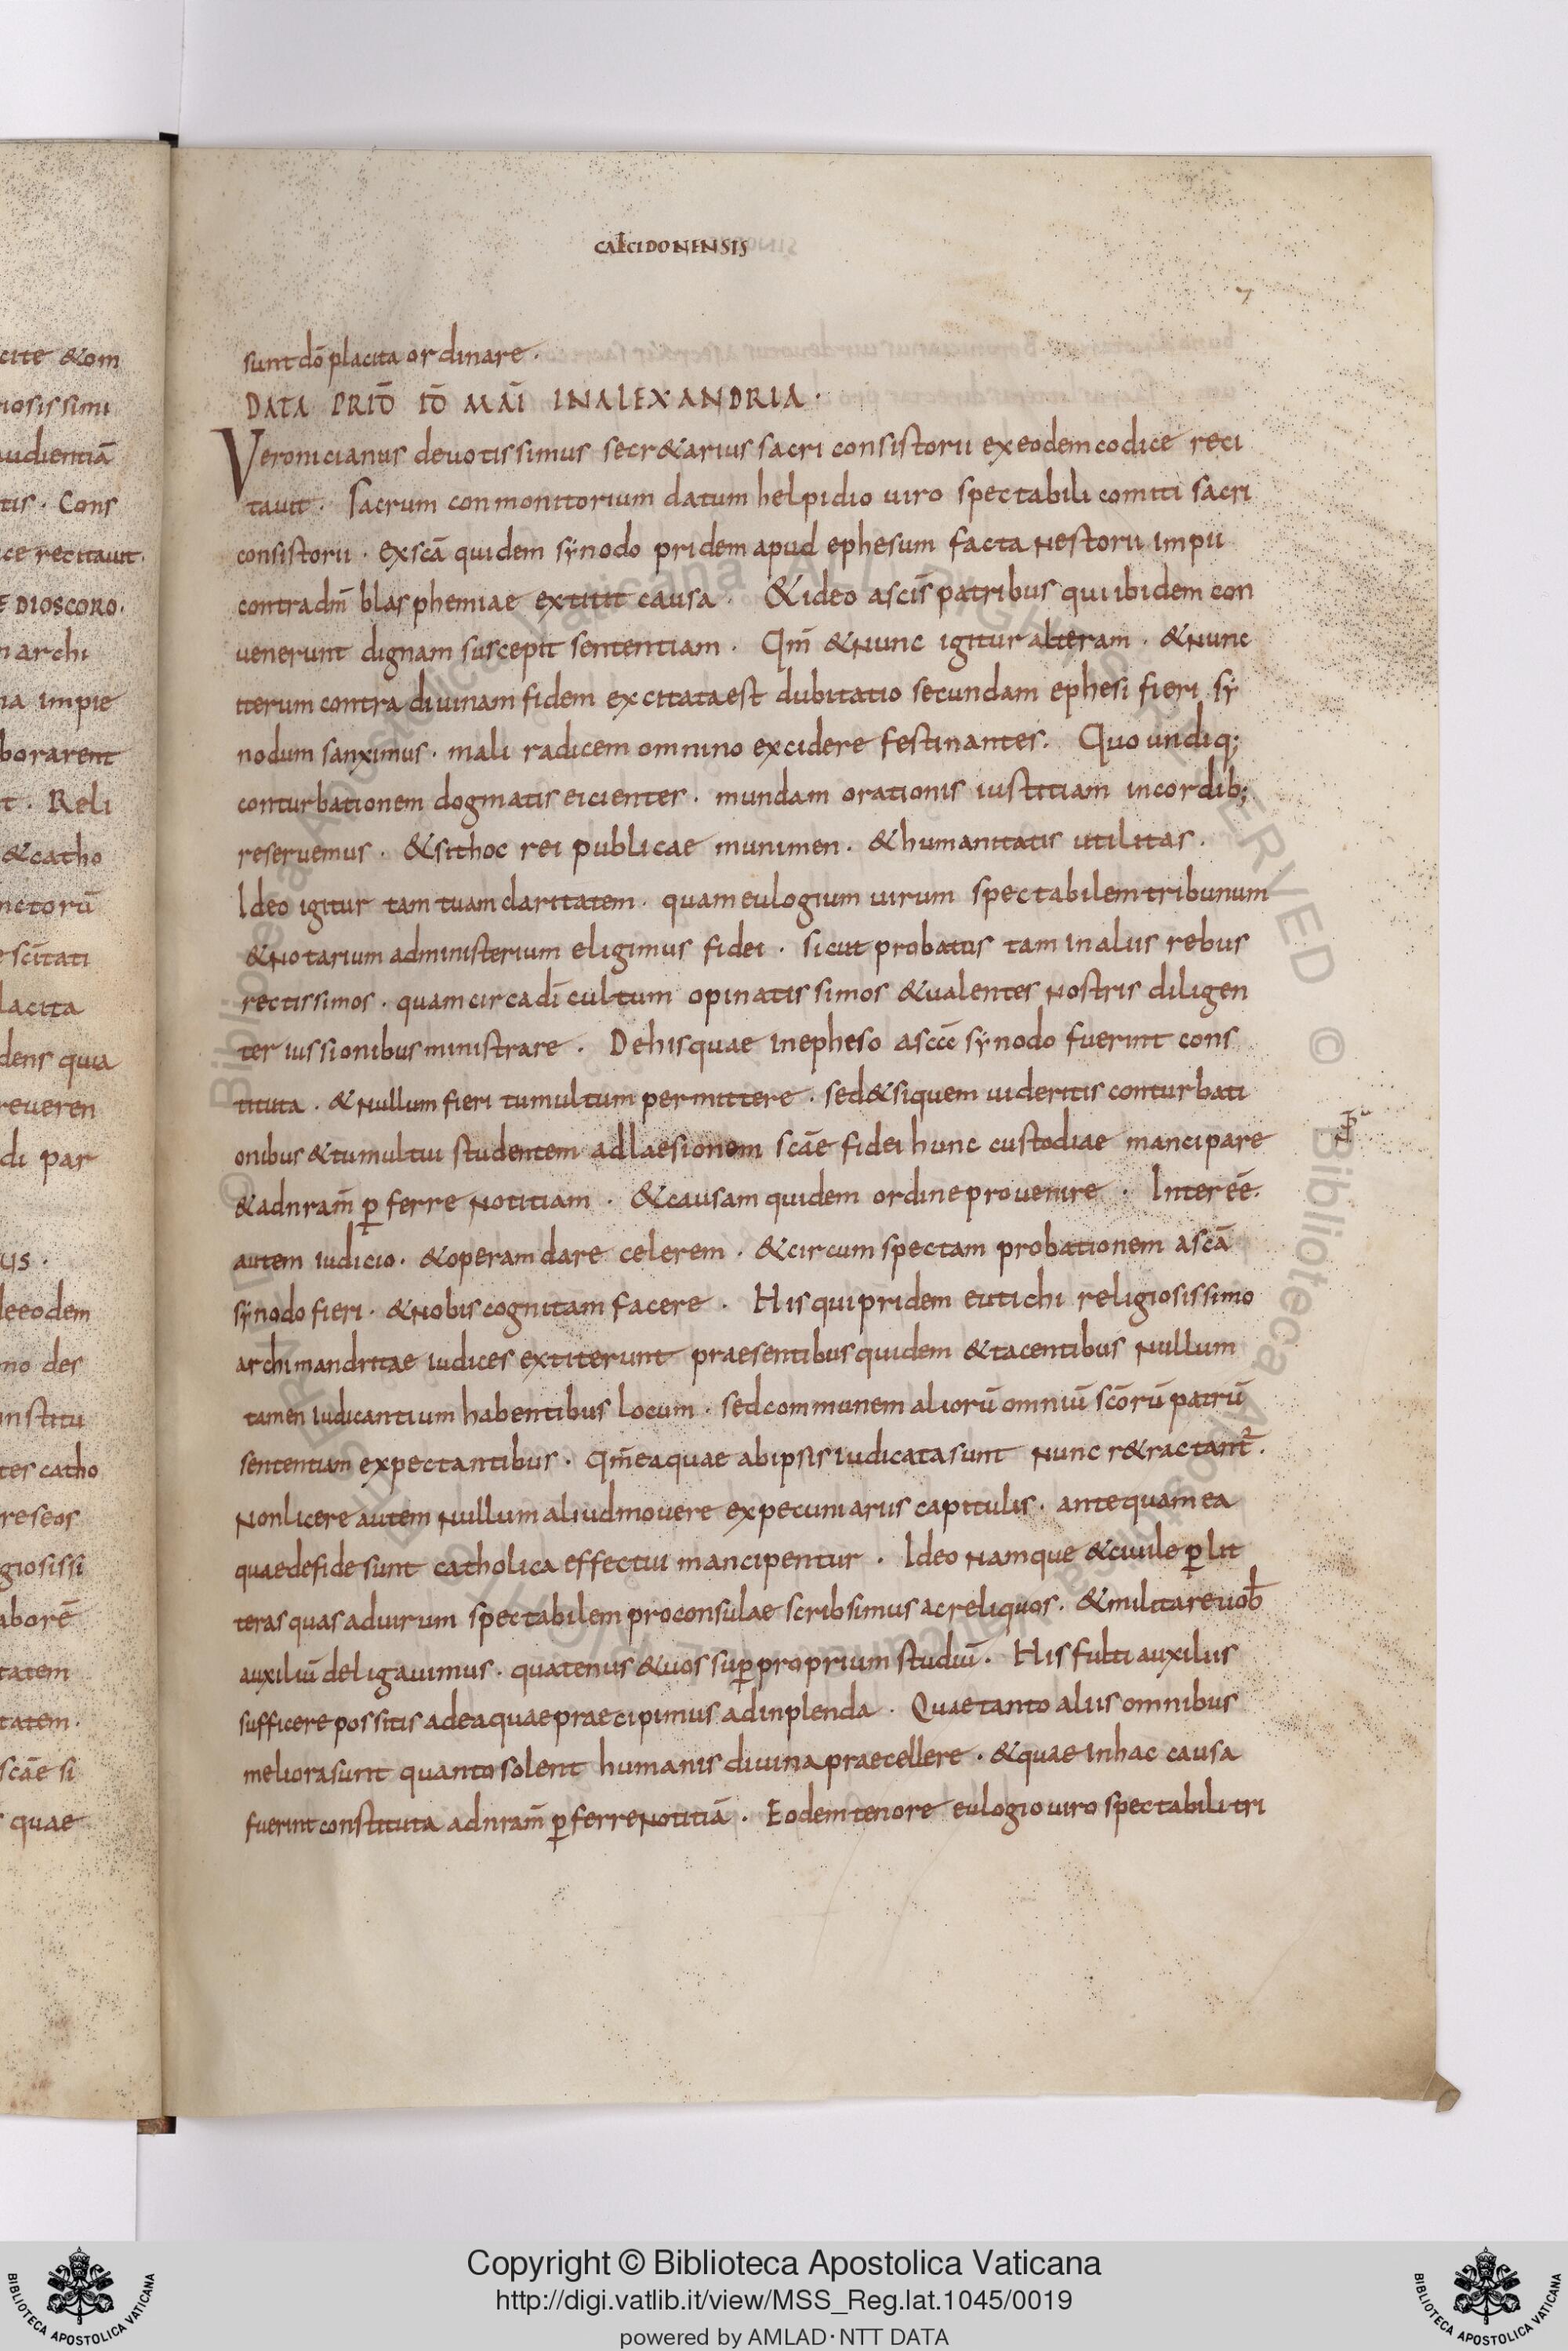 CALCIDONENSIS
7
sunt dō placita ordinare .
DATA PRIɔ̄ Iɔ̄ MAĪ IN ALEXANDRIA .
Veronicianus deuotissimus secr&arius sacri consistorii ex eodem codice reci
tauit . Sacrum conmonitorium datum helpidio uiro spectabili comiti sacri
consistorii . ex scā quidem synodo pridem apud ephesum facta nestorii impii
contra dnm̄ blasphemiae extitit causa . & ideo a scis̄ patribus qui ibidem con
uenerunt dignam suscepit sententiam . Qm̄ & nunc igitur alteram . & nunc
iterum contra diuinam fidem excitata est dubitatio secundam ephesi fieri sy
nodum sanximus . mali radicem omnino excidere festinantes . Quo undiq;
conturbationem dogmatis eicientes . mundam orationis iustitiam in cordib;
reseruemus . & sit hoc rei publicae munimen . & humanitatis utilitas .
Ideo igitur tam tuam claritatem . quam eulogium uirum spectabilem tribunum
& notarium administerium eligimus fidei . sicut probatus tam in aliis rebus
rectissimos . quam circa dī cultum opinatissimos & ualentes nostris diligen
ter iussionibus ministrare . De his quae in epheso a scē synodo fuerint cons
tituta . & nullum fieri tumultum permittere . sed & siquem uideritis conturbati
onibus & tumultui studentem ad laesionem scāe fidei hunc custodiae mancipare
& ad nram̄ ꝑferre notitiam . & causam quidem ordine prouenire . Interēē .
autem iudicio . & operam dare celerem . & circumspectam probationem a scā
synodo fieri . & nobis cognitam facere . His qui pridem eutichi religiosissimo
archimandritae iudices extiterunt praesentibus quidem & tacentibus nullum
tamen iudicantium habentibus locum . sed communem aliorū omniū scōrū patrū
sententiam expectantibus . Qm̄ ea quae ab ipsis iudicata sunt nunc r&ractant᷑ .
Non licere autem nullum aliud mouere ex pecuniariis capitulis . antequam ea
quae de fide sunt catholica effectui mancipentur . Ideo namque & ciuile ꝑ lit
teras quas ad uirum spectabilem proconsulae scribsimus ac reliquos . & militare uob̄
auxiliū deligauimus . quatenus & uos suꝑ proprium studiū . His fulti auxiliis
sufficere possitis ad ea quae praecipimus adinplenda . Quae tanto aliis omnibus
meliora sunt quanto solent humanis diuina praecellere . & quae in hac causa
fuerint constituta ad nram̄ ꝑferre notitiā . Eodem tenore eulogio uiro spectabili tri
cite & om
iosissimi
audientiā
tis . Cons
ce recitauit .
E DIOSCORO .
archi
impie
borarent
t . Reli
& catho
nctorū
scitati
lacita
dens quia
reueren
di par
us .
eodem
mo des
nstitu
tes catho
reseos
giosissi
aborē
tatem
tatem .
scāe si
quae
Copyright © Biblioteca Apostolica Vaticana
http://digi.vatlib.it/view/MSS_Reg.lat.1045/0019
powered by AMLAD·NTT DATA
BIBLIOTECA APOSTOLICA VATICANA
BIBLIOTECA APOSTOLICA VATICANA